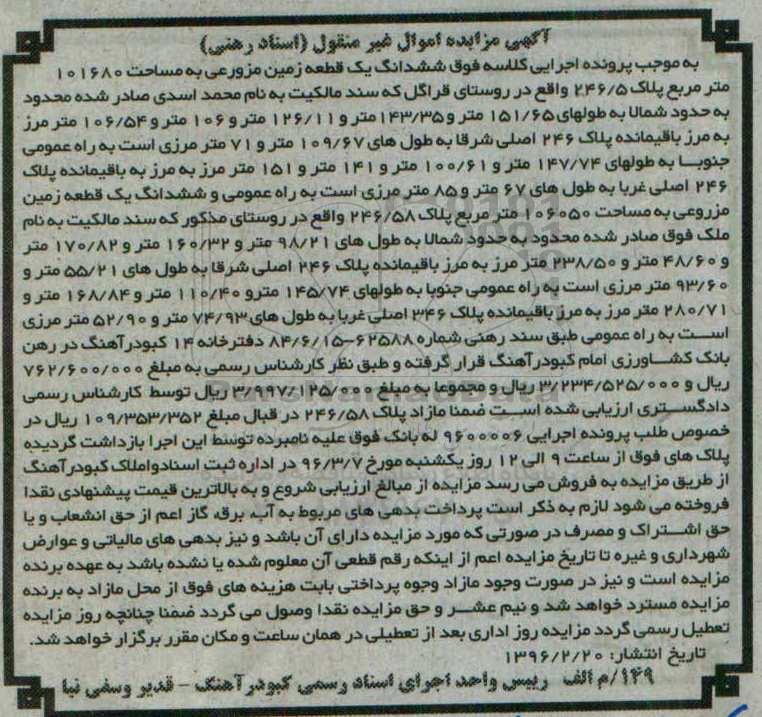 آگهی مزایده اموال غیر منقول (اسناد رهنی)
به موجب پرونده اجرایی کلاسه فوق ششدانگ یک قطعه زمین مزروعی به مساحت ۱۰۱۶۸۰
متر مربع پلاک ۲۴۶/۵ واقع در روستای قراگل که سند مالکیت به نام محمد اسدی صادر شده محدود
به حدود شمالا به طولهای ۱۵۱/۶۵ متر و ۱۴۳/۳۵ متر و ۱۲۶/۱۱ متر و ۱۰۶ متر و ۱۰۶/۵۴ متر مرز
به مرز باقیمانده پلاک ۲۴۶ اصلی شرقا به طول های ۱۰۹/۶۷ متر و ۷۱ متر مرزی است به راه عمومی
جنوبا به طولهای ۱۴۷/۷۴ متر و ۱۰۰/۶۱ متر و ۱۴۱ متر و ۱۵۱ متر مرز به مرز به باقیمانده پلاک
۲۴۶ اصلی غربا به طول های ۶۷ متر و ۸۵ متر مرزی است به راه عمومی و ششدانگ یک قطعه زمین
مزروعی به مساحت ۱۰۶۰۵۰ متر مربع پلاک ۲۴۶/۵۸ واقع در روستای مذکور که سند مالکیت به نام
ملک فوق صادر شده محدود به حدود شمالا به طول های ۹۸/۲۱ متر و ۱۶۰/۳۲ متر و ۱۷۰/۸۲ متر
و ۴۸/۶۰ متر و ۲۳۸/۵۰ متر مرز به مرز باقیمانده پلاک ۲۴۶ اصلی شرقا به طول های ۵۵/۲۱ متر و
۹۳/۶۰ متر مرزی است به راه عمومی جنوبا به طولهای ۱۴۵/۷۴ مترو ۱۱۰/۴۰ متر و ۱۶۸/۸۴ متر و
۲۸۰/۷۱ متر مرز به مرز باقیمانده پلاک ۳۴۶ اصلی غربا به طول های ۷۴/۹۳ متر و ۵۲/۹۰ متر مرزی
است به راه عمومی طبق سند رهنی شماره ۶۲۵۸۸-۸۴/۶/۱۵ دفترخانه ۱۴ کبودرآهنگ در رهن
بانک کشاورزی امام کبودرآهنگ قرار گرفته و طبق نظر کارشناس رسمی به مبلغ ۷۶۲/۶۰۰/۰۰۰
ریال و ۳/۲۳۴/۵۲۵/۰۰۰ ریال و مجموعا به مبلغ ۳/۹۹۷/۱۲۵/۰۰۰ ریال توسط کارشناس رسمی
دادگستری ارزیابی شده است ضمنا مازاد پلاک ۲۴۶/۵۸ در قبال مبلغ ۱۰۹/۳۵۳/۳۵۲ ریال در
خصوص طلب پرونده اجرایی ۹۶۰۰۰۰۶ له بانک فوق علیه نامبرده توسط این اجرا بازداشت گردیده
پلاک های فوق از ساعت ۹ الی ۱۲ روز یکشنبه مورخ ۹۶/۳/۷ در اداره ثبت اسنادواملاک کبودرآهنگ
از طریق مزایده به فروش می رسد مزایده از مبالغ ارزیابی شروع و به بالاترین قیمت پیشنهادی نقدا
فروخته می شود لازم به ذکر است پرداخت بدهی های مربوط به آب، برق، گاز اعم از حق انشعاب و یا
حق اشتراک و مصرف در صورتی که مورد مزایده دارای آن باشد و نیز بدهی های مالیاتی و عوارض
شهرداری و غیره تا تاریخ مزایده اعم از اینکه رقم قطعی آن معلوم شده یا نشده باشد به عهده برنده
مزایده است و نیز در صورت وجود مازاد وجوه پرداختی بابت هزینه های فوق از محل مازاد به برنده
مزایده مسترد خواهد شد و نیم عشر و حق مزایده نقدا وصول می گردد ضمنا چنانچه روز مزایده
تعطیل رسمی گردد مزایده روز اداری بعد از تعطیلی در همان ساعت و مکان مقرر برگزار خواهد شد.
تاریخ انتشار: ۱۳۹۶/۲/۲۰
۱۴۹/م الف رییس واحد اجرای اسناد رسمی کبودرآهنگ - قدیر وسفی نیا